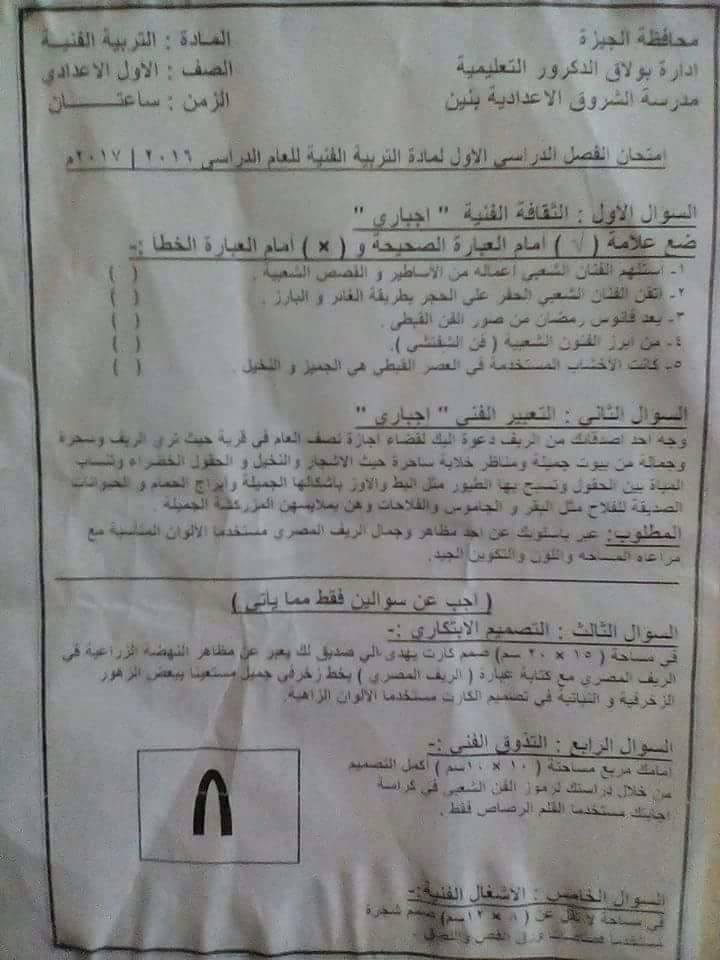 محافظة الجيزة
المادة : التربية الفنية
ادارة بولاق الدكرور التعليمية
الصف : الاول الاعدادي
مدرسة الشروق الاعدادية بنين
الزمن : ساعتان
امتحان الفصل الدراسى الاول لمادة التربية الفنية للعام الدراسى ٢٠١٦ / ٢٠١٧م
السوال الاول : الثقافة الفنية " اجباري "
ضع علامة ( √ ) أمام العبارة الصحيحة و ( × ) أمام العبارة الخطأ :-
١- استلهم الفنان الشعبي أعماله من الأساطير و القصص الشعبية . ( )
٢- اتقن الفنان الشعبي الحفر على الحجر بطريقة الغائر و البارز . ( )
٣- يعد فانوس رمضان من صور الفن القبطى . ( )
٤- من ابرز الفنون الشعبية ( فن الشفتشى ). ( )
٥- كانت الأخشاب المستخدمة في العصر القبطي هي الجميز و النخيل . ( )
السوال الثانى : التعبير الفنى " اجباري "
وجه احد اصدقائك من الريف دعوة اليك لقضاء اجازة نصف العام في قرية حيث تري الريف وسحرة
وجمالة من بيوت جميلة ومناظر خلابة ساحرة حيث الاشجار والنخيل و الحقول الخضراء وتنساب
المياة بين الحقول وتسبح بها الطيور مثل البط والاوز بأشكالها الجميلة وأبراج الحمام و الحيوانات
الصديقة للفلاح مثل البقر و الجاموس والفلاحات وهن بملابسهن المزركشة الجميلة .
المطلوب: عبر باسلوبك عن احد مظاهر وجمال الريف المصري مستخدما الألوان المناسبة مع
مراعاه المساحه واللون والتكوين الجيد.
( اجب عن سوالين فقط مما يأتى )
السوال الثالث : التصميم الابتكاري :-
فى مساحة ( ١٥ × ٢٠ سم) صمم كارت يهدى الي صديق لك يعبر عن مظاهر النهضة الزراعية في
الريف المصري مع كتابة عبارة ( الريف المصري ) بخط زخرفي جميل مستعينا ببعض الزهور
الزخرفية و النباتية في تصميم الكارت مستخدما الألوان الزاهية.
السوال الرابع : التذوق الفنى :-
امامك مربع مساحتة ( ١٠ × ١٠سم ) أكمل التصميم
من خلال دراستك لرموز الفن الشعبي في كراسة
اجابتك مستخدما القلم الرصاص فقط .
السوال الخامس : الاشغال الفنية:-
في مساحة لا تقل عن ( ٨ × ١٢سم) صمم شجرة
مستخدما القص واللصق .